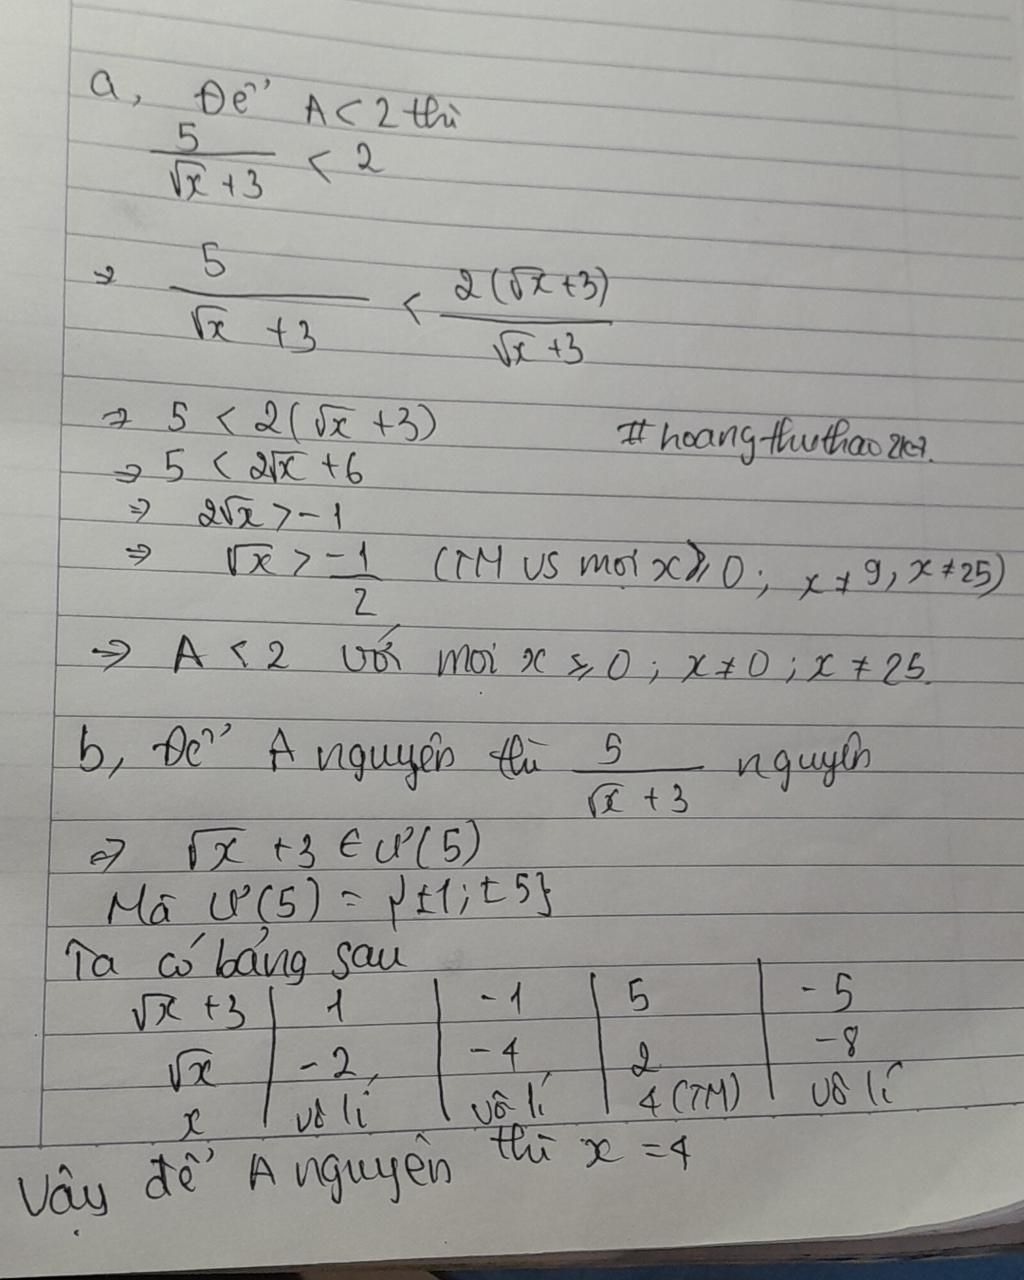 a, Để A < 2 thì
5/(√x + 3) < 2
⇒ 5/(√x + 3) < 2(√x + 3)/(√x + 3)
⇒ 5 < 2(√x + 3)
#hoangthuthao2k7.
⇒ 5 < 2√x + 6
⇒ 2√x > -1
⇒ √x > -1/2 (TM vs mọi x ≥ 0; x ≠ 9, x ≠ 25)
⇒ A < 2 với mọi x ≥ 0; x ≠ 0; x ≠ 25.
b, Để A nguyên thì 5/(√x + 3) nguyên
⇒ √x + 3 ∈ Ư(5)
Mà Ư(5) = {±1; ±5}
Ta có bảng sau
√x + 3 | 1 | -1 | 5 | -5
√x | -2 | -4 | 2 | -8
x | vô lí | vô lí | 4 (TM) | vô lí
Vậy để A nguyên thì x = 4